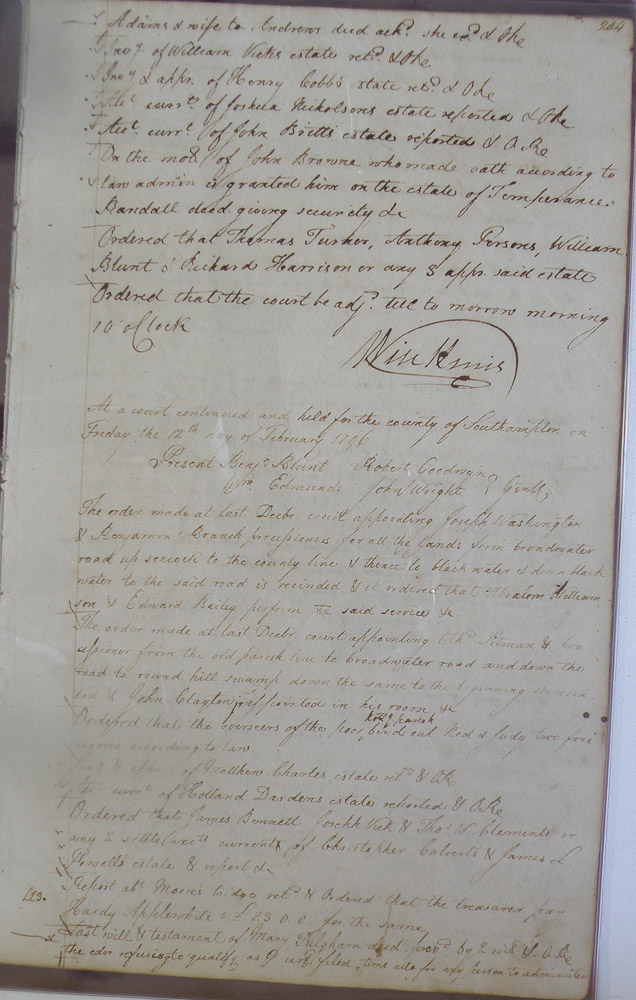 204
Adams & wife to Andrews deed ackd. she exd. & Ore
Invy of William Vicks estate retd. & Ore
Invy & appr. of Henry Cobbs estate retd. & Ore
Acct. currt. of Joshua Nicholsons estate reported & Ore
Acct. currt. of John Bretts estate reported & O. Re
On the moto. of John Browne who made oath according to
law admion is granted him on the estate of Temperance
Randall deed. giving security &c
Ordered that Thomas Turner, Anthony Persons, William
Blunt & Richard Harrison or any 3 appr. said estate
Ordered that the court be adjd. till to morrow morning
10 oClock
At a court continued and held for the county of Southampton on
Friday the 12th day of February 1796
Present Benja. Blunt Robert Goodwyn
Wm Edmunds John Wright } Gentl;
The order made at last Decbr. court appointing Joseph Washington
& Benjamin Branch processioners for all the lands from broadwater
road up seacock to the county line & thence to black water & down black
water to the said road is recinded & it ordered that Absalom William
son & Edward Bailey perform the said service &c
The order made at last Decbr. court appointing Pitman & pro
cessioner from the old parish line to broadwater road and down the
road to round hill swamp down the same to the beginning is recin
ded & John Clayton appointed in his room &c
Ordered that the overseers of the poor bind out Ned & Judy two free
negroes according to law
& appr. of Matthew Charles estate retd. & ORe
Acct. currt. of Holland Dardens estate reported & O.Re
Ordered that James Bennett Joseph Vick & Thos. W. Clements or
any 2 settle accts currents of Christopher Calverts & James
estate & report &c
Report abt. Moores bridge retd. & Ordered that the treasurer pay
£23. Hardy Applewhite £23 0. 0. for the same
Last will & testament of Mary Fulgham deed. provd. by 2 wits & O. Re
the exor refusing to qualify as certified, time allo for any person to administer